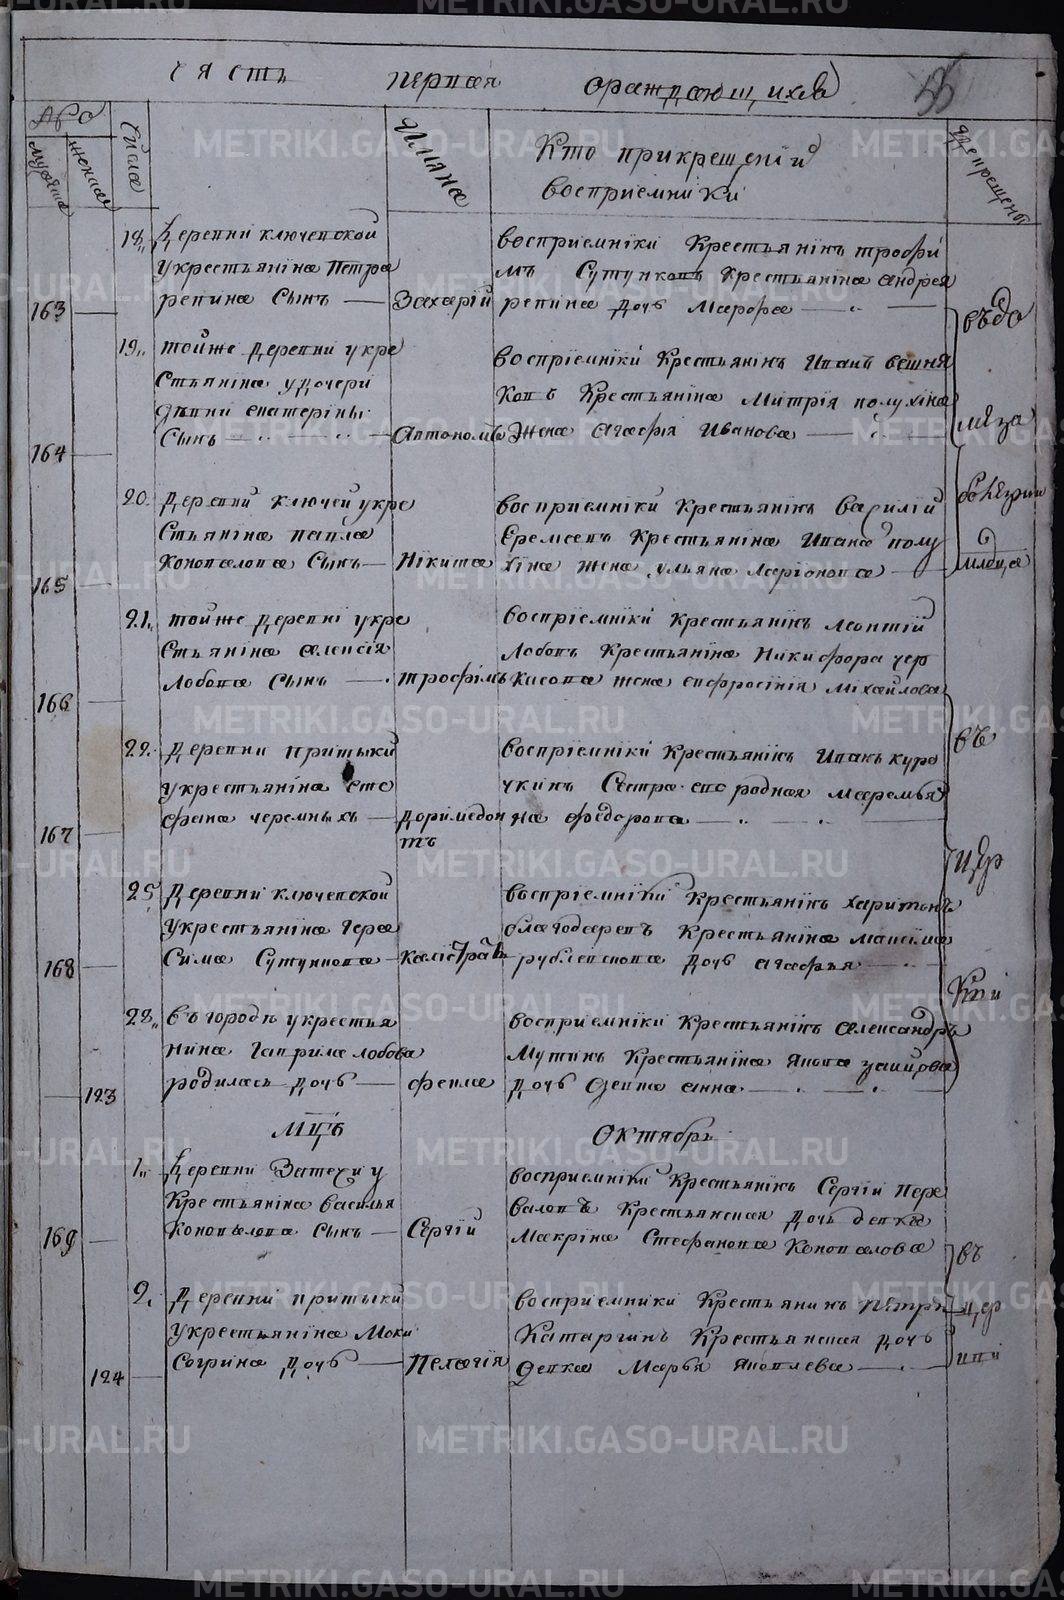 METRIKI.GASO-URAL.RU
Часть первая ораждающихся
33
Аро
мужеска
женска
Числа
Имяна
Кто прикрещеніи
восприемники
Где крещены
18,, Деревни ключевской
укрестьяніна Петра
163 репина Сынъ — Захарій
восприемніки Крестьянінъ трофи
мъ Сутунковъ Крестьяніна андрея
репина дочь Марфа
19,, тойже деревни укре
стьяніна удочери
девки екатерины
164 Сынъ — Автономъ
восприемніки Крестьянінъ Иванъ вешня
ковъ Крестьяніна Митрія полухіна
Жена Агафія Иванова
въдо
мѣза
20. деревни ключей укре
стьяніна павла
165 Коновалова Сынъ — Нікита
восприемніки Крестьянінъ Василій
Еремеевъ Крестьяніна Ивана полу
хіна жена ульяна Ларіонова
болезни
младенца
21,, тойже деревні укре
стьяніна алексія
166 Лобова Сынъ — трофімъ
восприемніки Крестьянінъ леонтій
Лобовъ Крестьяніна Никифора чер
касова жена евфросінія Міхайлова
22. деревни притыки
укрестьяніна сте
167 фана черемныхъ — Доримедон
тъ
восприемніки Крестьянінъ Иванъ куро
чкинъ Сестра его родная Маремья
на федорова
въ
цер
Кви
25 деревни ключевской
укрестьяніна гера
168 Сима Сутункова — Калістратъ
восприемніки Крестьянінъ харитонъ
благодаревъ Крестьяніна максіма
рублевскова дочь агафья
28,, въгородъ укрестья
нина гаврила лобова
123 родилась дочь — фекла
восприемники Крестьянінъ александръ
Мутинъ Крестьяніна Якова заицова
дочь Девка анна
МЦЪ Октябрь
1,, деревни Затехи у
Крестьяніна василья
169 Коновалова Сынъ — Сергій
восприемники Крестьянінъ Сергій Пере
валовъ Крестьянская дочь девка
Макріна Стефанова Коновалова
2. деревни притыки
укрестьяніна Моки
124 Согрина дочь — Пелагія
восприемники Крестьянинъ Петръ
Катаргинъ Крестьянская дочь
Девка Марья Яковлева
въ
цер
кви